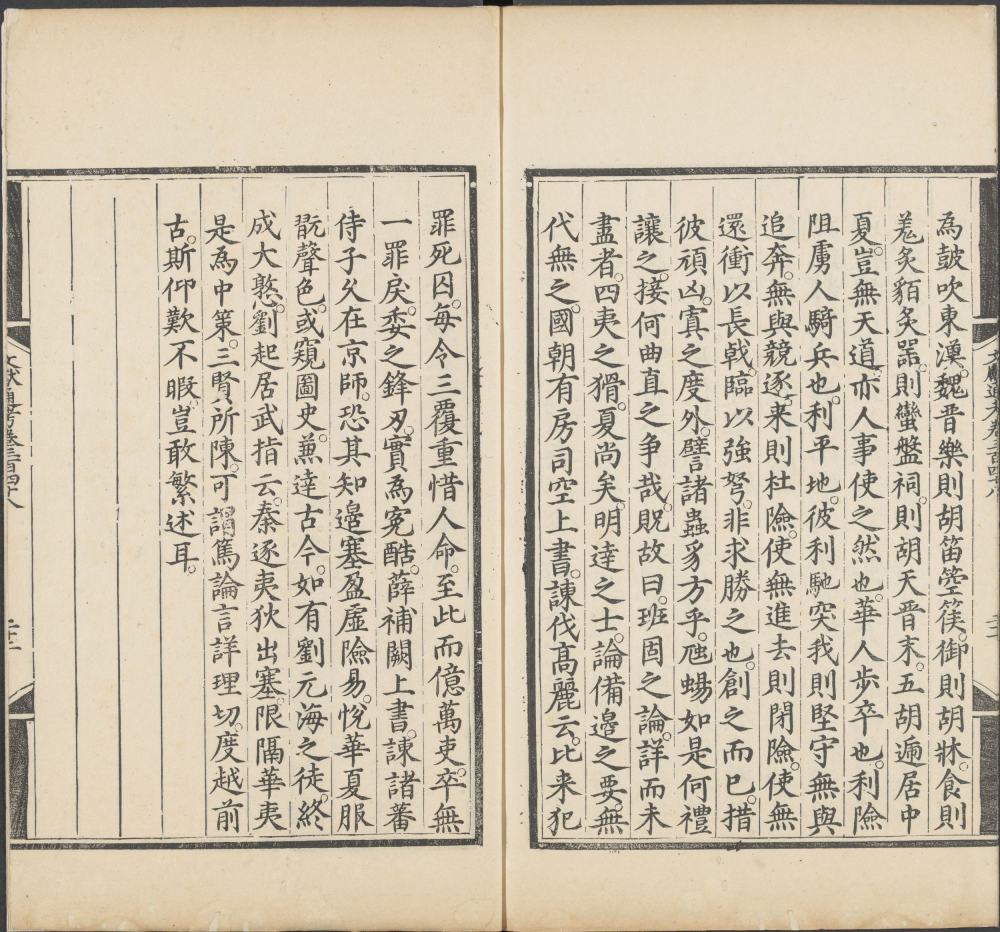 為鼓吹東漢魏晉樂則胡笛箜篌御則胡牀食則
羗炙貊炙器則蠻盤祠則胡天晋末五胡遍居中
夏豈無天道亦人事使之然也華人步卒也利險
阻虜人騎兵也利平地彼利馳突我則堅守無與
追奔無與競逐来則杜險使無進去則閉險使無
還衝以長戟臨以強弩非求勝之也創之而已措
彼頑凶寘之度外譬諸蟲豸方乎虺蜴如是何禮
讓之接何曲直之争哉貺故曰班固之論詳而未
盡者四夷之猾夏尚矣明達之士論備邉之要無
代無之國朝有房司空上書諌伐髙麗云比来犯
罪死囚每令三覆重惜人命至此而億萬吏卒無
一罪戾委之鋒刃實為寃酷薛補闕上書諌諸蕃
侍子久在京師恐其知邉塞盈虛險易悅華夏服
翫聲色或窺圖史兼達古今如有劉元海之徒終
成大憝劉起居武指云秦逐夷狄出塞限隔華夷
是為中策三賢所陳可謂篤論言詳理切度越前
古斯仰歎不暇豈敢繁述耳
文獻通考卷三百四十八